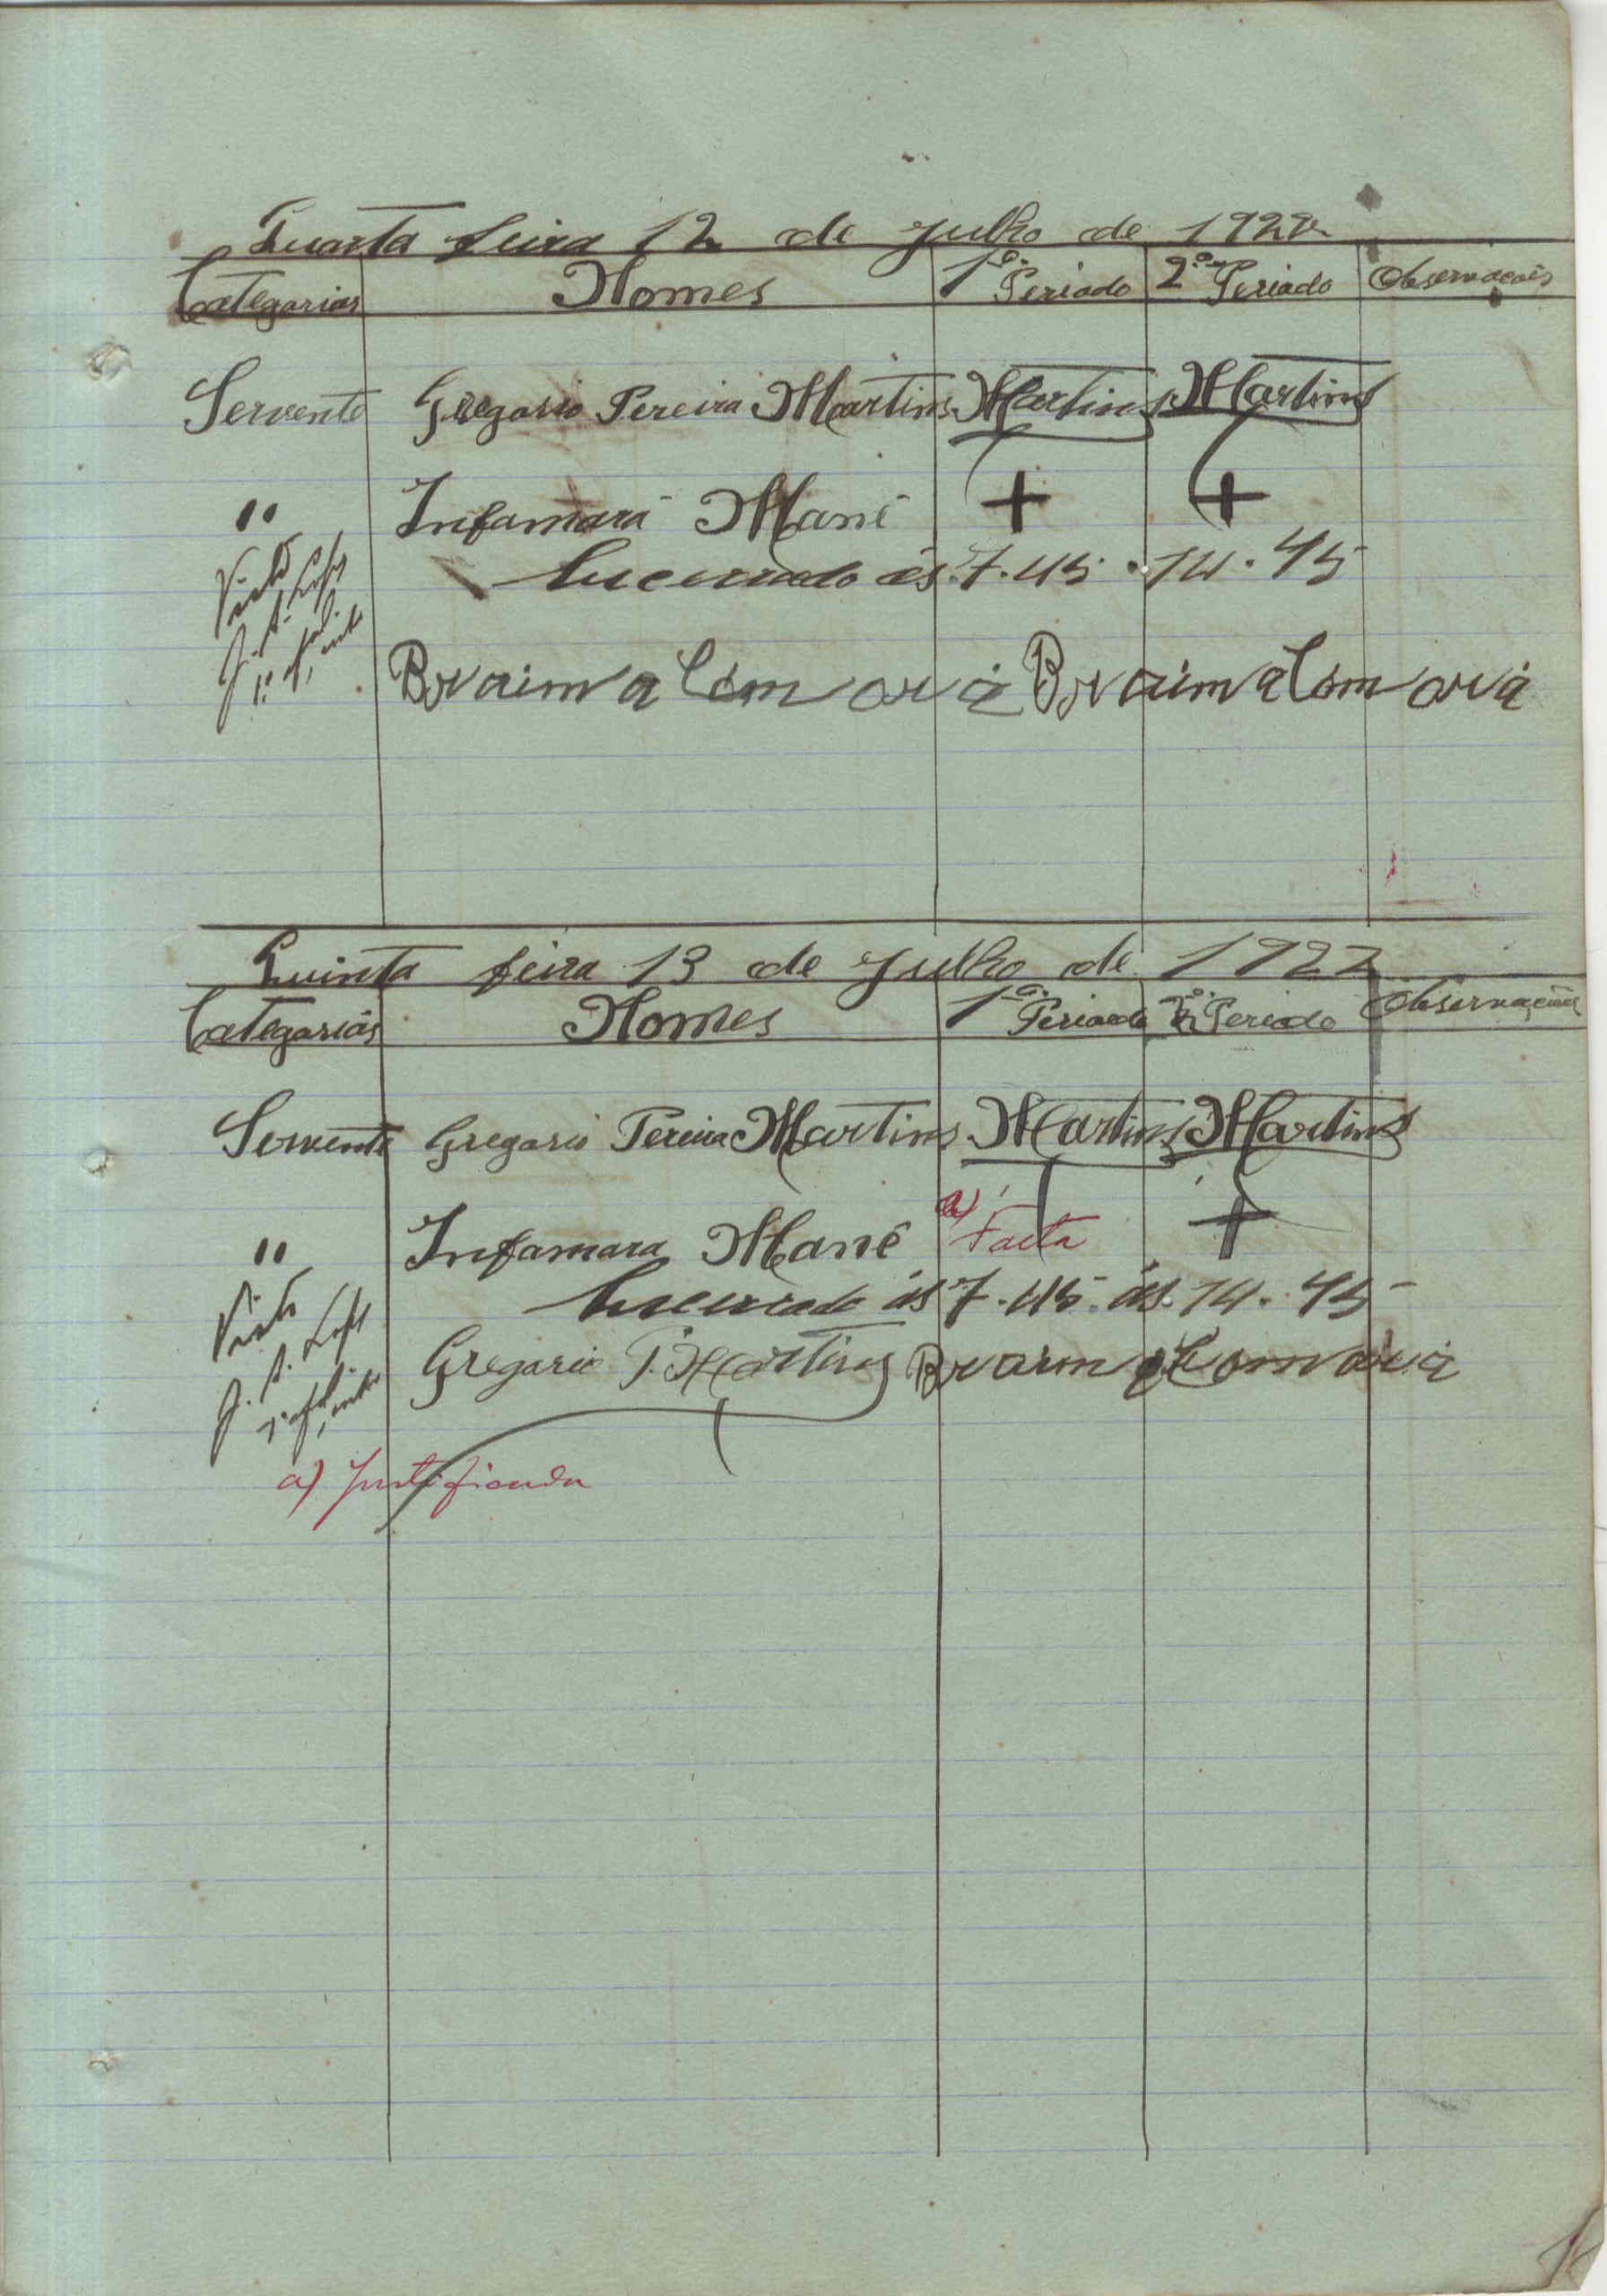 Quarta feira 12 de Julho de 1922
Categorias Nomes 1º Periodo 2º Periodo Observações
Servente Gregorio Pereira Martins Martins Martins
" Infamará Mané + +
Encerrado ás 7.45 . 14.45
Visto
Braima Camará Braima Camará
Quinta feira 13 de Julho de 1922
Categorias Nomes 1º Periodo 2º Periodo Observações
Servente Gregorio Pereira Martins Martins Martins
" Infamara Mané a) Falta +
Encerrado ás 7.45 ás 14.45
Visto
Gregorio P. Martins Braima Camará
a) Justificada